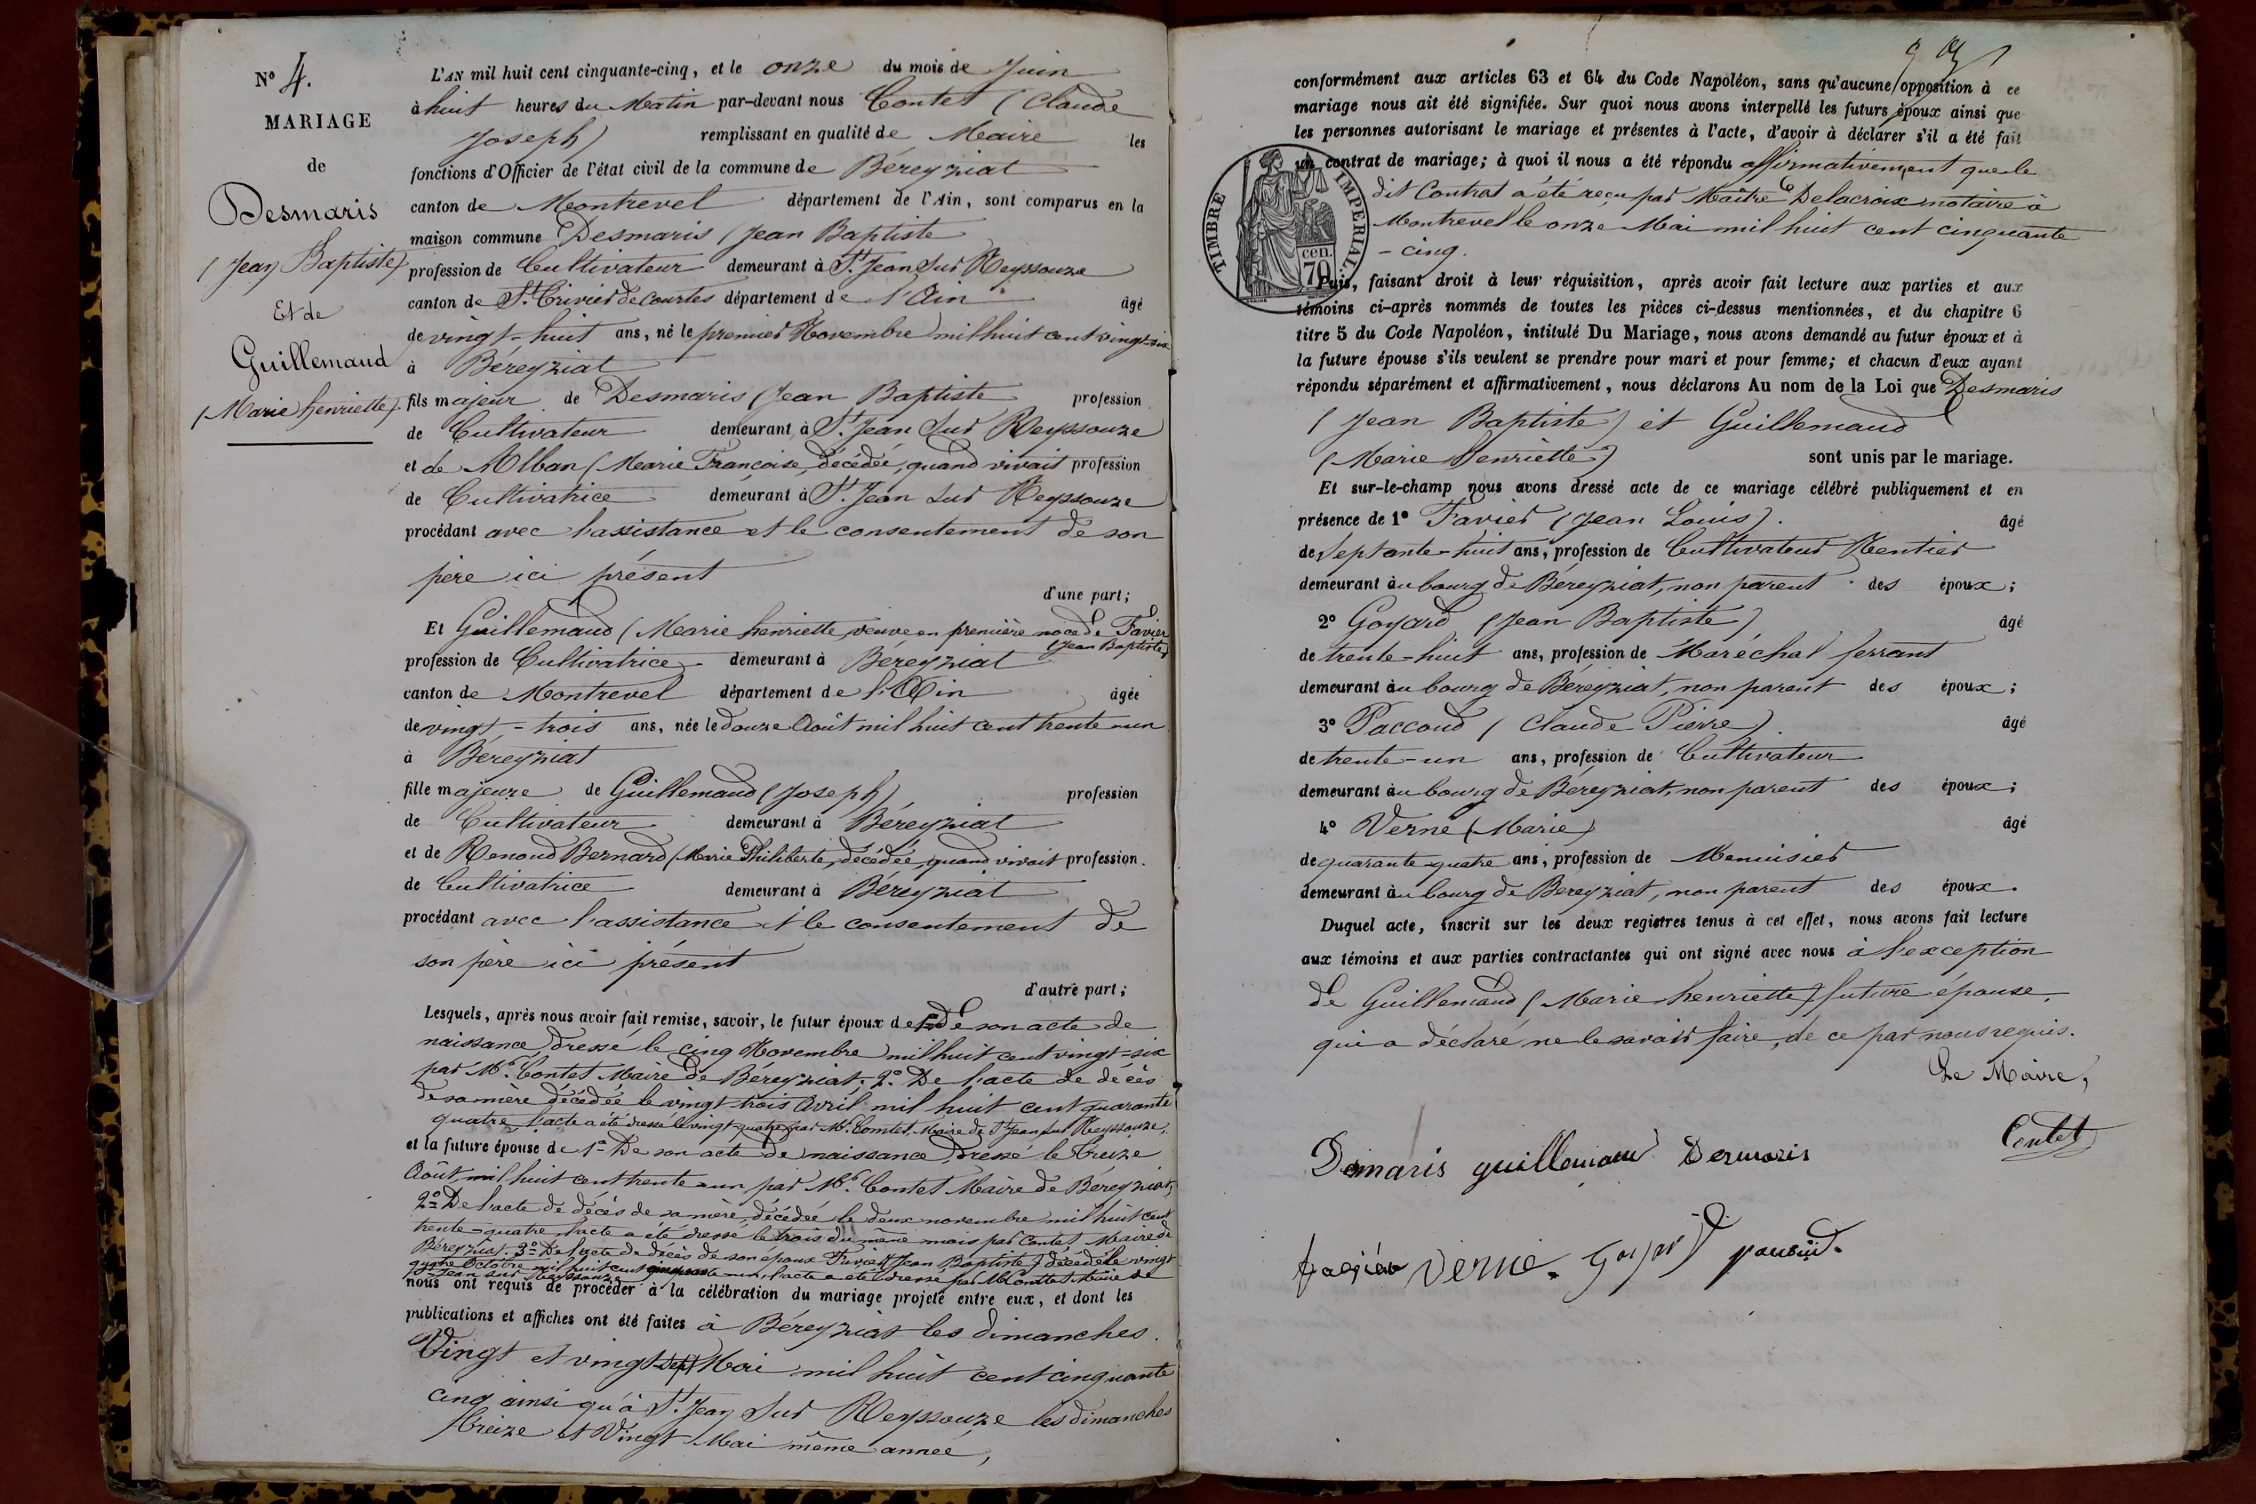 N° 4.
MARIAGE
de
Desmaris
(Jean Baptiste)
Et de
Guillemaud
(Marie henriette).
L'AN mil huit cent cinquante-cinq, et le onze du mois de Juin
à huit heures du Matin par-devant nous Contet (Claude
Joseph) remplissant en qualité de Maire les
fonctions d'Officier de l'état civil de la commune de Béreyziat
canton de Montrevel département de l'Ain, sont comparus en la
maison commune Desmaris (Jean Baptiste
profession de Cultivateur demeurant à St. Jean Sur Reyssouze
canton de St. Trivier de Courtes département de l'Ain âgé
de vingt-huit ans, né le premier Novembre mil huit cent vingt-six
à Béreyziat
fils majeur de Desmaris (Jean Baptiste profession
de Cultivateur demeurant à St. Jean Sur Reyssouze
et de Alban (Marie Françoise, décédée, quand vivait profession
de Cultivatrice demeurant à St. Jean Sur Reyssouze
procédant avec l'assistance et le consentement de son
père ici présent
d'une part;
Et Guillemaud (Marie henriette, veuve en première noce de Favier
(Jean Baptiste)
profession de Cultivatrice demeurant à Béreyziat
canton de Montrevel département de l'Ain âgée
de vingt-trois ans, née le douze Août mil huit cent trente-un
à Béreyziat
fille majeure de Guillemaud (Joseph) profession
de Cultivateur demeurant à Béreyziat
et de Renoud Bernard (Marie Philiberte, décédée, quand vivait profession.
de Cultivatrice demeurant à Béreyziat
procédant avec l'assistance et le consentement de
son père ici présent
d'autre part;
Lesquels, après nous avoir fait remise, savoir, le futur époux de 1° de son acte de
naissance dressé le cinq Novembre mil huit cent vingt-six
par Mr. Contet Maire de Béreyziat. 2° De l'acte de décès
de sa mère décédée le vingt-trois Avril mil huit cent quarante
quatre, l'acte a été dressé le vingt-quatre par Mr. Comtet, Maire de St Jean sur Reyssouze,
et la future épouse de 1° De son acte de naissance dressé le treize
Août mil huit cent trente-un par Mr. Contet Maire de Béreyziat,
2° De l'acte de décès de sa mère, décédée le deux novembre mil huit cent
trente-quatre, l'acte a été dressé le trois du même mois par Contet Maire de
Béreyziat. 3° De l'acte de décès de son époux Favier (Jean Baptiste) décédé le vingt
Octobre mil huit cent cinquante-un, l'acte a été dressé par Mr. Comtet Maire de
St Jean sur Reyssouze
nous ont requis de procéder à la célébration du mariage projeté entre eux, et dont les
publications et affiches ont été faites à Béreyziat les dimanches
Vingt et vingt-sept Mai mil huit cent cinquante
cinq ainsi qu'à St. Jean Sur Reyssouze les dimanches
treize et Vingt Mai même année,
conformément aux articles 63 et 64 du Code Napoléon, sans qu'aucune opposition à ce
mariage nous ait été signifiée. Sur quoi nous avons interpellé les futurs époux ainsi que
les personnes autorisant le mariage et présentes à l'acte, d'avoir à déclarer s'il a été fait
un contrat de mariage; à quoi il nous a été répondu affirmativement que le
dit Contrat a été reçu par Maître Delacroix notaire à
Montrevel le onze Mai mil huit cent cinquante
-cinq.
TIMBRE IMPÉRIAL.
70 cen.
Puis, faisant droit à leur réquisition, après avoir fait lecture aux parties et aux
témoins ci-après nommés de toutes les pièces ci-dessus mentionnées, et du chapitre 6
titre 5 du Code Napoléon, intitulé Du Mariage, nous avons demandé au futur époux et à
la future épouse s'ils veulent se prendre pour mari et pour femme; et chacun d'eux ayant
répondu séparément et affirmativement, nous déclarons Au nom de la Loi que Desmaris
(Jean Baptiste) et Guillemaud
(Marie henriette) sont unis par le mariage.
Et sur-le-champ nous avons dressé acte de ce mariage célébré publiquement et en
présence de 1° Favier (Jean Louis). âgé
de Septante-huit ans, profession de Cultivateur Rentier
demeurant au bourg de Béreyziat, non parent des époux;
2° Goyard (Jean Baptiste) âgé
de trente-huit ans, profession de Maréchal ferrant
demeurant au bourg de Béreyziat, non parent des époux;
3° Paccoud (Claude Pierre) âgé
de trente-un ans, profession de Cultivateur
demeurant au bourg de Béreyziat, non parent des époux;
4° Verne (Marie) âgé
de quarante-quatre ans, profession de Menuisier
demeurant au bourg de Béreyziat, non parent des époux.
Duquel acte, inscrit sur les deux registres tenus à cet effet, nous avons fait lecture
aux témoins et aux parties contractantes qui ont signé avec nous à l'exception
de Guillemaud (Marie henriette) future épouse,
qui a déclaré ne le savoir faire, de ce par nous requis.
Le Maire,
Contet
Demaris guillemaud Desmaris
Verne. Goyard paccoud.